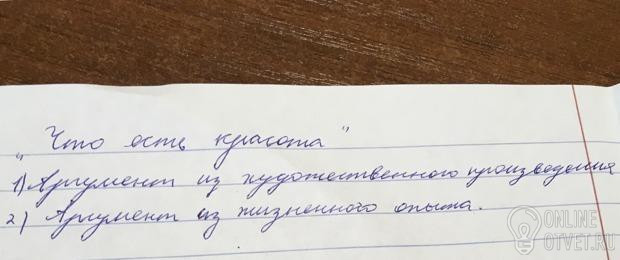 „Что есть красота"
1) Аргумент из художественного произведения
2) Аргумент из жизненного опыта.
ONLINE
OTVET.RU